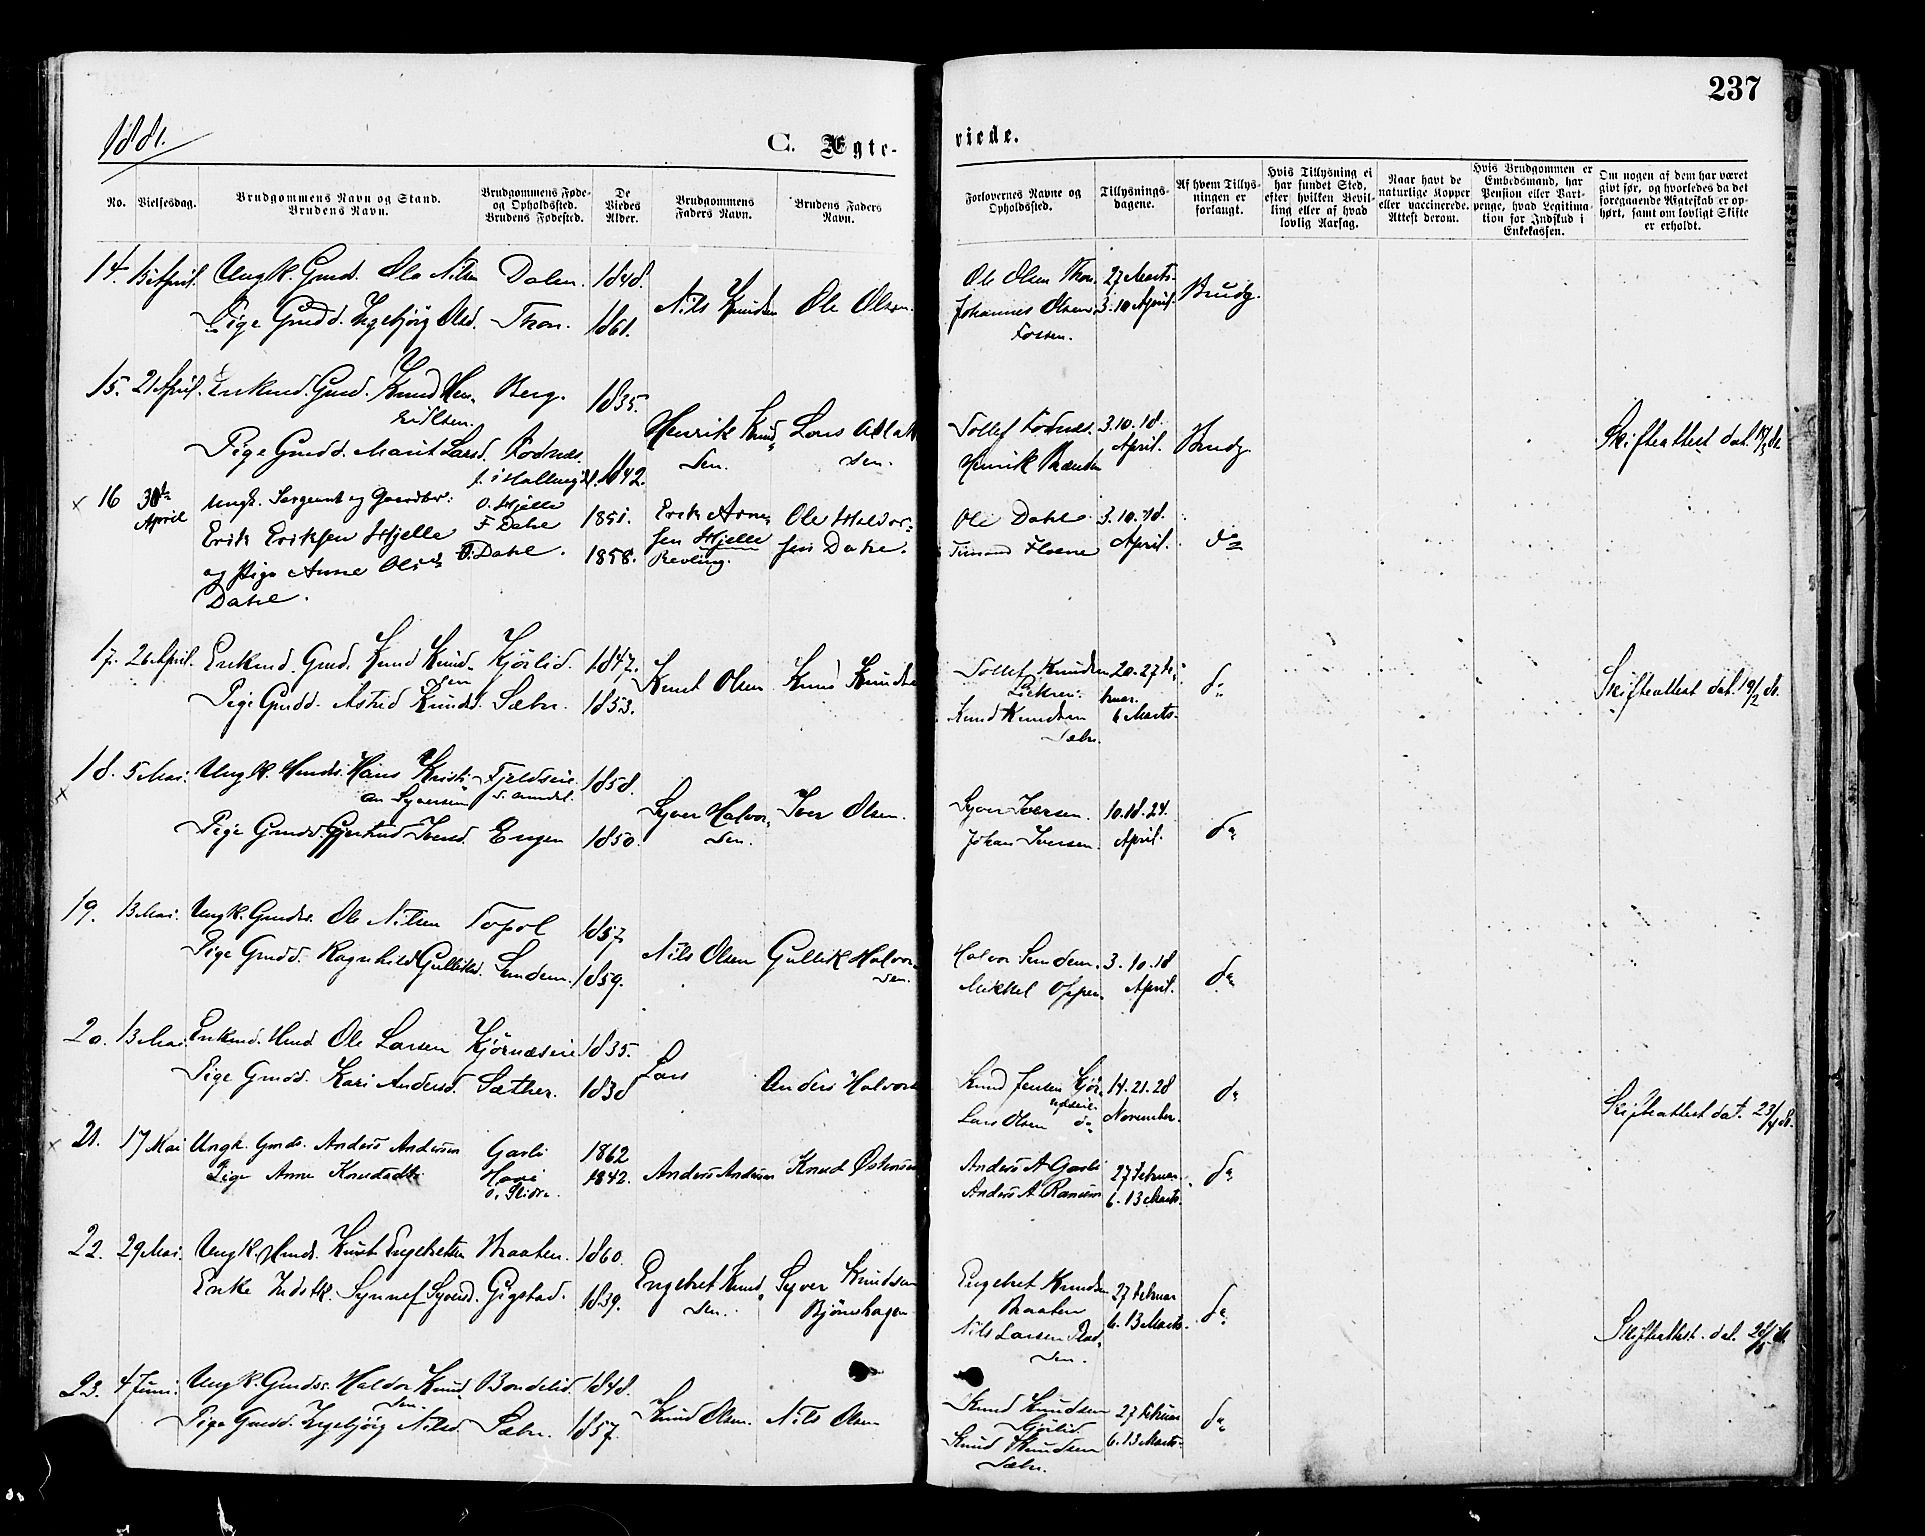 237
1881.
C. Ægte-
viede.
No.
Vielsesdag.
Brudgommens Navn og Stand.
Brudens Navn.
Brudgommens Føde-
og Opholdssted.
Brudens Fødested.
De
Viedes
Alder.
Brudgommens
Faders Navn.
Brudens Faders
Navn.
Forlovernes Navne og
Opholdssted.
Tillysnings-
dagene.
Af hvem Tillys-
ningen er
forlangt.
Hvis Tillysning ei
har fundet Sted,
efter hvilken Bevil-
ling eller af hvad
lovlig Aarsag.
Naar havt de
naturlige Kopper
eller vaccinerede.
Attest derom.
Hvis Brudgommen er
Embedsmand, har
Pension eller Vart-
penge, hvad Legitima-
tion for Indskud i
Enkekassen.
Om nogen af dem har været
givt før, og hvorledes da det
foregaaende Ægteskab er op-
hørt, samt om lovligt Skifte
er erholdt.
14. 15 April. Ungk. Gmds. Ole Nilsen Dalen. 1848.
Pige Gmdd. Ingebjørg Olsd. Thon. 1861.
Nils Knudsen Ole Olsen.
Ole Olsen Thon. 27 Marts.
Johannes Olsen 3. 10 April. Brudg.
Fossen.
15. 21 April. Enkemd. Gmd. Knud Hen-
riksen. Berg. 1835.
Pige Gmdd. Marit Larsd. Fodnæs.
f. i Halling 1842.
Henrik Knud-
sen. Lars Aslak
sen.
Tollef Fodnæs. 3. 10. 18.
Henrik April. Brudg.
Skifteattest dat.
16 30te
April Ungk. Sergeant og Gaardbr:
Erik Eriksen Hjelle
og Pige Anne Olsd
Dahle.
O. Hjelle
F. Dahle
Dahle.
1851.
1858.
Erik Arne-
sen Hjelle
Ole Halvor-
sen Dahle.
Ole Dahle 3. 10. 18.
April. do
17. 26 April. Enkemd. Gmd. Knud Knud-
sen Kjørlid. 1847.
Pige Gmdd. Astrid Knudsd. Sæbr. 1853.
Knut Olsen Knud Knudse
Tollef Knudsen 20. 27 Fe-
bruar.
Knud Knudsen 6 Marts.
Sæbr.
do
Skifteattest dat. 19/2 d.
18. 5 Mai. Ungk. Hmds. Hans Kristi-
an Syversen Fjeldseie 1858.
Pige Gmdd. Gjertrud Iversd. Engen 1850.
Syver Halvor-
sen. Iver Olsen.
Syver Iversen. 10. 18. 24.
Johan Iversen. April.
do
19. 13 Mai. Ungk. Gmds. Ole Nilsen Topol 1857.
Pige Gmdd. Ragnhild Gulliksd. Sundem. 1859.
Nils Olsen Gullik Halvor-
sen.
Halvor Sundem. 3. 10. 18
Mikkel Oppen. April.
do
20. 13 Mai. Enkemd. Hmd. Ole Larsen Kjørnæseie 1835.
Pige Gmdd. Kari Andersd. Sæther. 1838
Lars Anders Halvors
Knud Jensen Kjør- 14. 21. 28
Lars Olsen do November.
do
Skifteattest dat. 23/4 81.
21. 17 Mai Ungk. Gmds. Anders Andersen Garli 1862
Pige Anne Knudsdtr. 1842.
Anders Andersen Knud Østensen
Anders A Garli 27 Februar
Anders A Ranum 6. 13 Marts.
do
22. 29 Mai. Ungk. Hmds. Knut Engebretsen Braaten. 1860.
Enke Indstk. Synnøf Syversd. Gigstad. 1839.
Engebret Knud-
sen. Syver Knudsen
Bjørnhagen.
Engebret Knudsen 27 Februar
Braaten 6. 13 Marts.
Nils Larsen
do
Skifteattest. dat.
23. 4 Juni. Ungk. Gmds. Haldor Knud-
sen. Bondelid. 1848.
Pige Gmdd. Ingebjørg Nilsd. Sæbr. 1857.
Knud Olsen. Nils Olsen
Knud Knudsen 27 Februar
Kjørlid 6. 13 Marts.
Knud Knudsen
Sæbr.
do